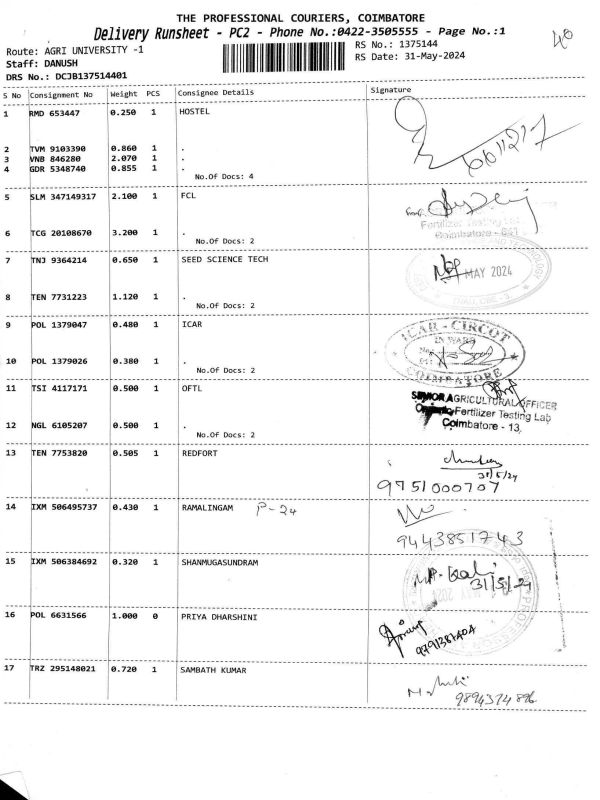 THE PROFESSIONAL COURIERS, COIMBATORE
Delivery Runsheet - PC2 - Phone No.:0422-3505555 - Page No.:1
40
Route: AGRI UNIVERSITY -1
RS No.: 1375144
Staff: DANUSH
RS Date: 31-May-2024
DRS No.: DCJB137514401
S No Consignment No Weight PCS Consignee Details Signature
1 RMD 653447 0.250 1 HOSTEL
2 TVM 9103390 0.860 1 .
3 VNB 846280 2.070 1 .
4 GDR 5348740 0.855 1 .
No.Of Docs: 4
5 SLM 347149317 2.100 1 FCL
Fertilizer Testing Lab
6 TCG 20108670 3.200 1 .
Coimbatore - 641
No.Of Docs: 2
7 TNJ 9364214 0.650 1 SEED SCIENCE TECH
MAY 2024
8 TEN 7731223 1.120 1 .
No.Of Docs: 2
9 POL 1379047 0.480 1 ICAR
ICAR - CIRCOT
INWARD
10 POL 1379026 0.380 1 .
No.Of Docs: 2
COIMBATORE
11 TSI 4117171 0.500 1 OFTL
SENIOR AGRICULTURAL OFFICER
Organic Fertilizer Testing Lab
12 NGL 6105207 0.500 1 .
Coimbatore - 13.
No.Of Docs: 2
13 TEN 7753820 0.505 1 REDFORT
31/5/24
9751000707
14 IXM 506495737 0.430 1 RAMALINGAM P-24
9443851743
15 IXM 506384692 0.320 1 SHANMUGASUNDRAM
31/5/24
16 POL 6631566 1.000 0 PRIYA DHARSHINI
17 TRZ 295148021 0.720 1 SAMBATH KUMAR
9894374896